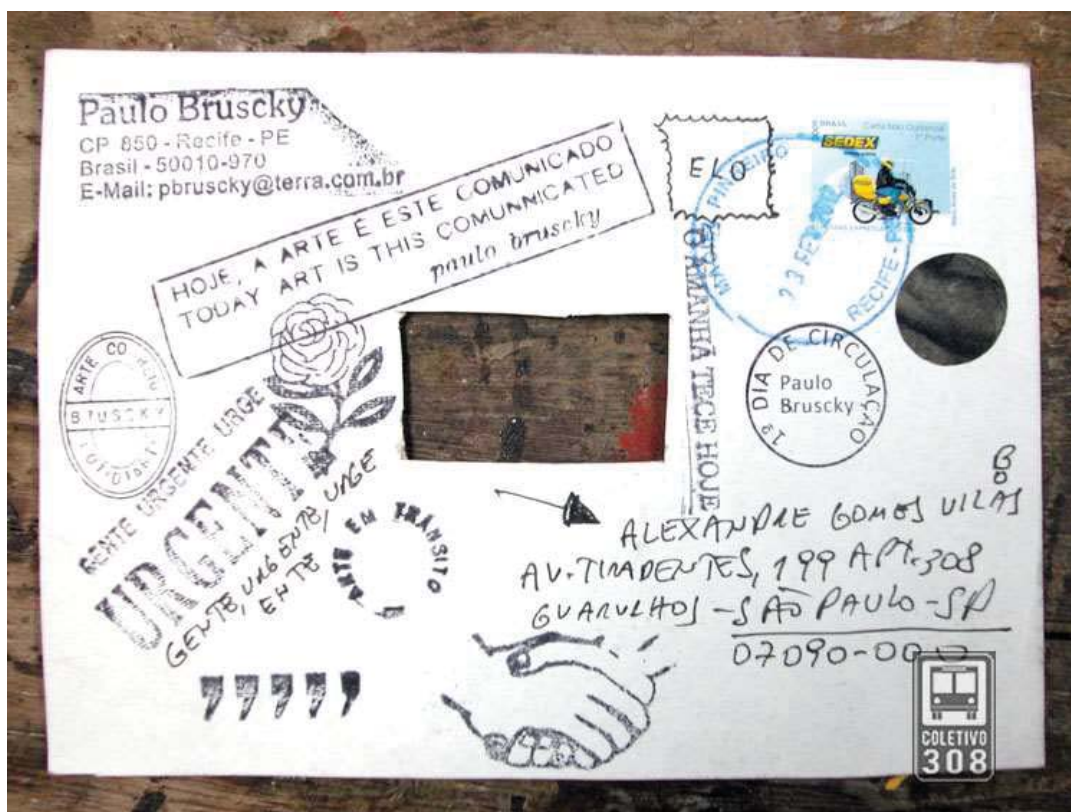 Paulo Bruscky
CP 850 - Recife - PE
Brasil - 50010-970
E-Mail: pbruscky@terra.com.br
HOJE, A ARTE É ESTE COMUNICADO
TODAY ART IS THIS COMUNNICATED
paulo bruscky
ELO
BRASIL
Carta Não Comercial
1º Porte
SEDEX
PINHEIRO
23 FEV
RECIFE - PE
O AMANHÃ TECE HOJE
1º DIA DE CIRCULAÇÃO
Paulo
Bruscky
ARTE CO
BRUSCKY
GENTE URGENTE URGE
URGENTE
GENTE, URGENTE, URGE
ENTE
ARTE EM TRÂNSITO
ALEXANDRE GOMES VILAS
BO
AV. TIRADENTES, 199 APT. 308
GUARULHOS - SÃO PAULO - SP
07090-000
,,,,,
COLETIVO
308